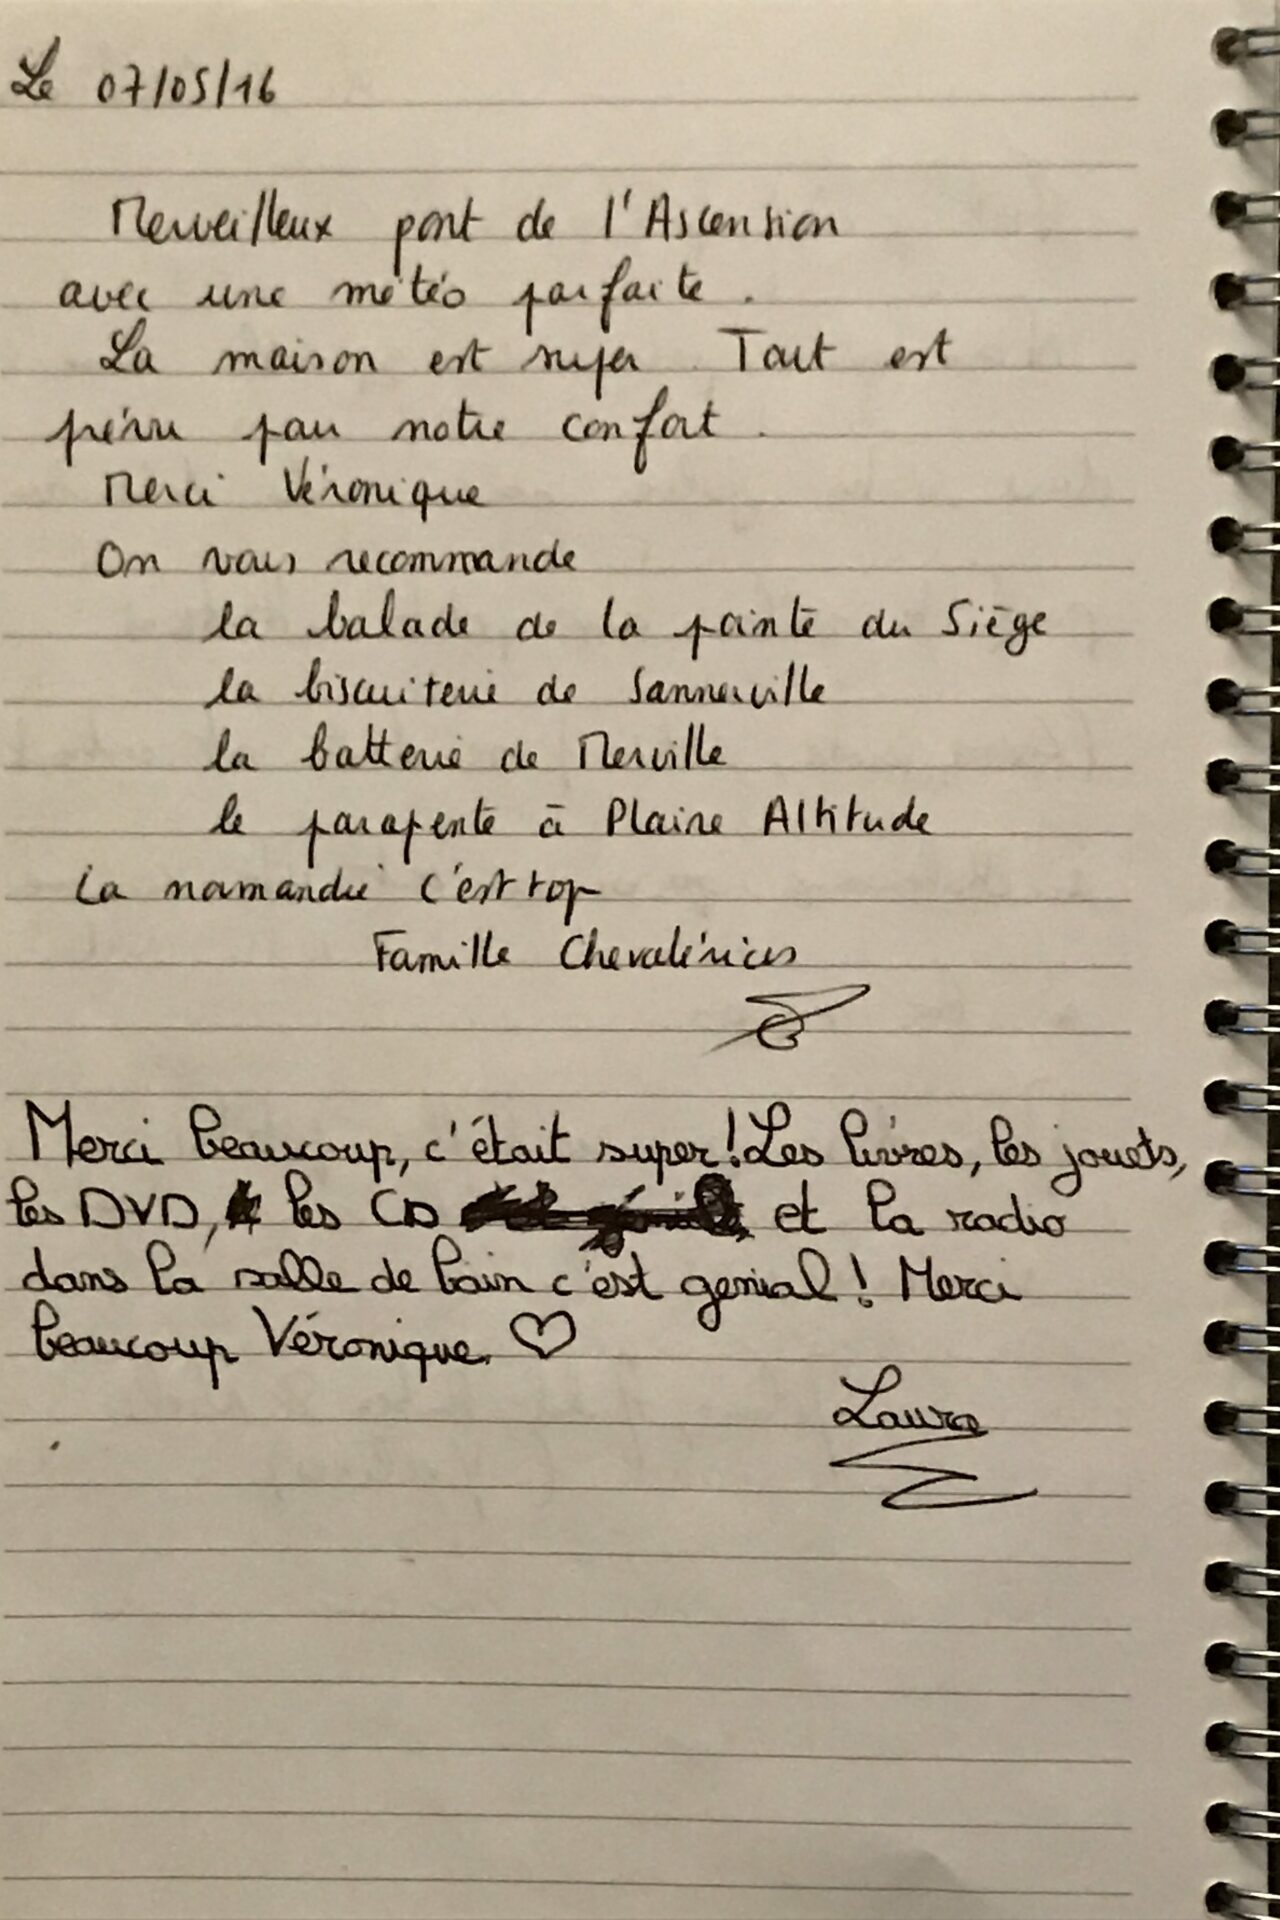 Le 07/05/16
Merveilleux pont de l'Ascension
avec une météo parfaite.
La maison est super. Tout est
prévu pour notre confort.
Merci Véronique
On vous recommande
la balade de la pointe du Siège
la biscuiterie de Sannerville
la batterie de Merville
le parapente à Plaine Altitude
La normandie c'est top
Famille
Merci beaucoup, c'était super! Les livres, les jouets,
les DVD, les CD et la radio
dans la salle de bain c'est genial! Merci
beaucoup Véronique. ♡
Laura